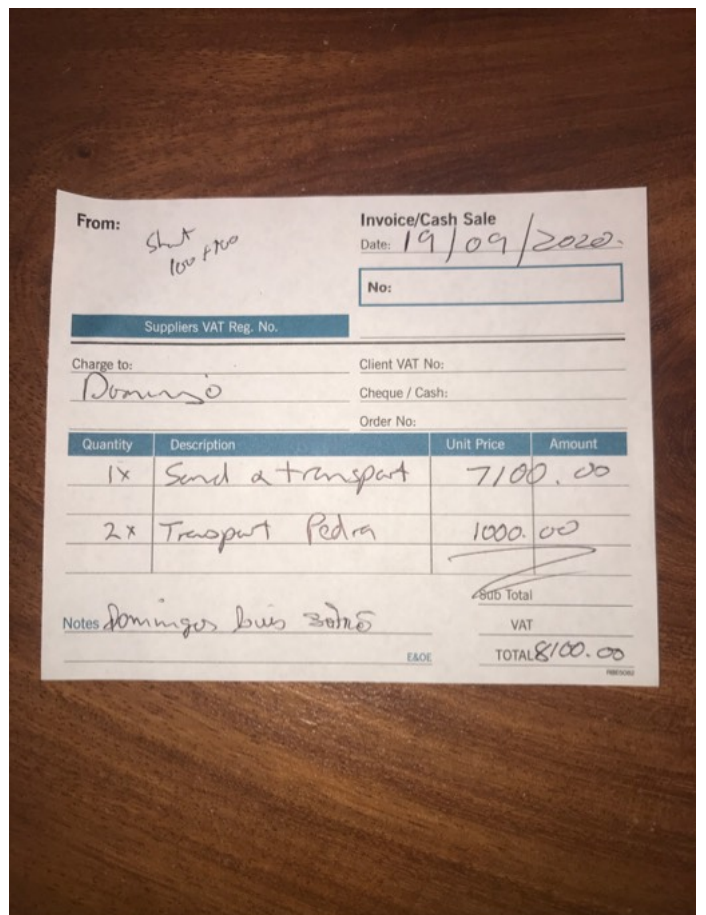 From:
100 + 700
Invoice/Cash Sale
Date: 19/09/2020.
No:
Suppliers VAT Reg. No.
Charge to:
Client VAT No:
Cheque / Cash:
Order No:
Quantity Description Unit Price Amount
1x Sand & transport 7100.00
2x Transport Pedra 1000.00
Sub Total
Notes Domingos
VAT
E&OE
TOTAL 8100.00